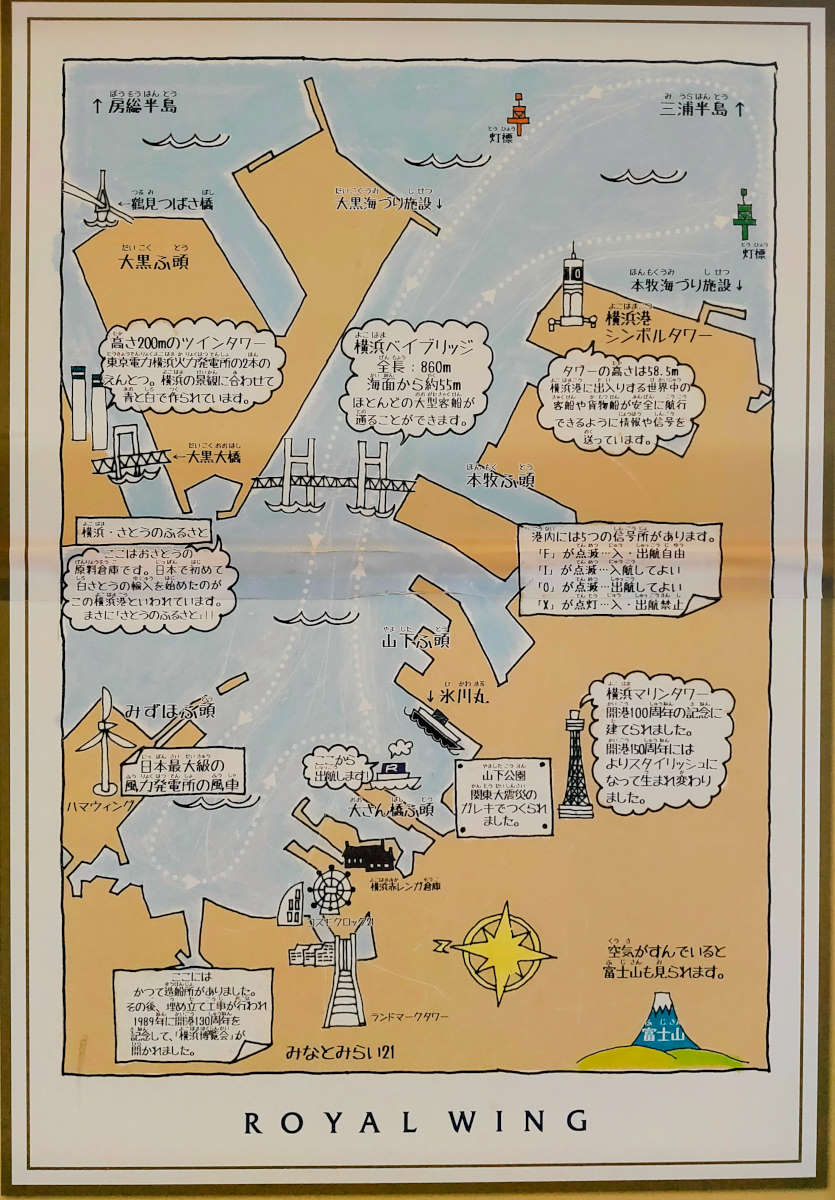 ↑房総半島
三浦半島↑
灯標
←鶴見つばさ橋
大黒海づり施設↓
灯標
大黒ふ頭
本牧海づり施設↓
横浜港
シンボルタワー
高さ200mのツインタワー
東京電力横浜火力発電所の2本の
えんとつ。横浜の景観に合わせて
青と白で作られています。
横浜ベイブリッジ
全長：860m
海面から約55m
ほとんどの大型客船が
通ることができます。
タワーの高さは58.5m
横浜港に出入りする世界中の
客船や貨物船が安全に航行
できるように情報や信号を
送っています。
←大黒大橋
本牧ふ頭
横浜・さとうのふるさと
ここはおさとうの
原料倉庫です。日本で初めて
白さとうの輸入を始めたのが
この横浜港といわれています。
まさに「さとうのふるさと」!!
港内には5つの信号所があります。
「F」が点滅…入・出航自由
「I」が点滅…入航してよい
「O」が点滅…出航してよい
「X」が点灯…入・出航禁止
山下ふ頭
↓氷川丸
みずほふ頭
日本最大級の
風力発電所の風車
ハマウィング
ここから
出航します!
R
大さん橋ふ頭
山下公園
関東大震災の
ガレキでつくられ
ました。
横浜マリンタワー
開港100周年の記念に
建てられました。
開港150周年には
よりスタイリッシュに
なって生まれ変わり
ました。
横浜赤レンガ倉庫
コスモクロック21
ランドマークタワー
みなとみらい21
ここには
かつて造船所がありました。
その後、埋め立て工事が行われ
1989年に開港130周年を
記念して、「横浜博覧会」が
開かれました。
空気がすんでいると
富士山も見られます。
富士山
ROYAL WING